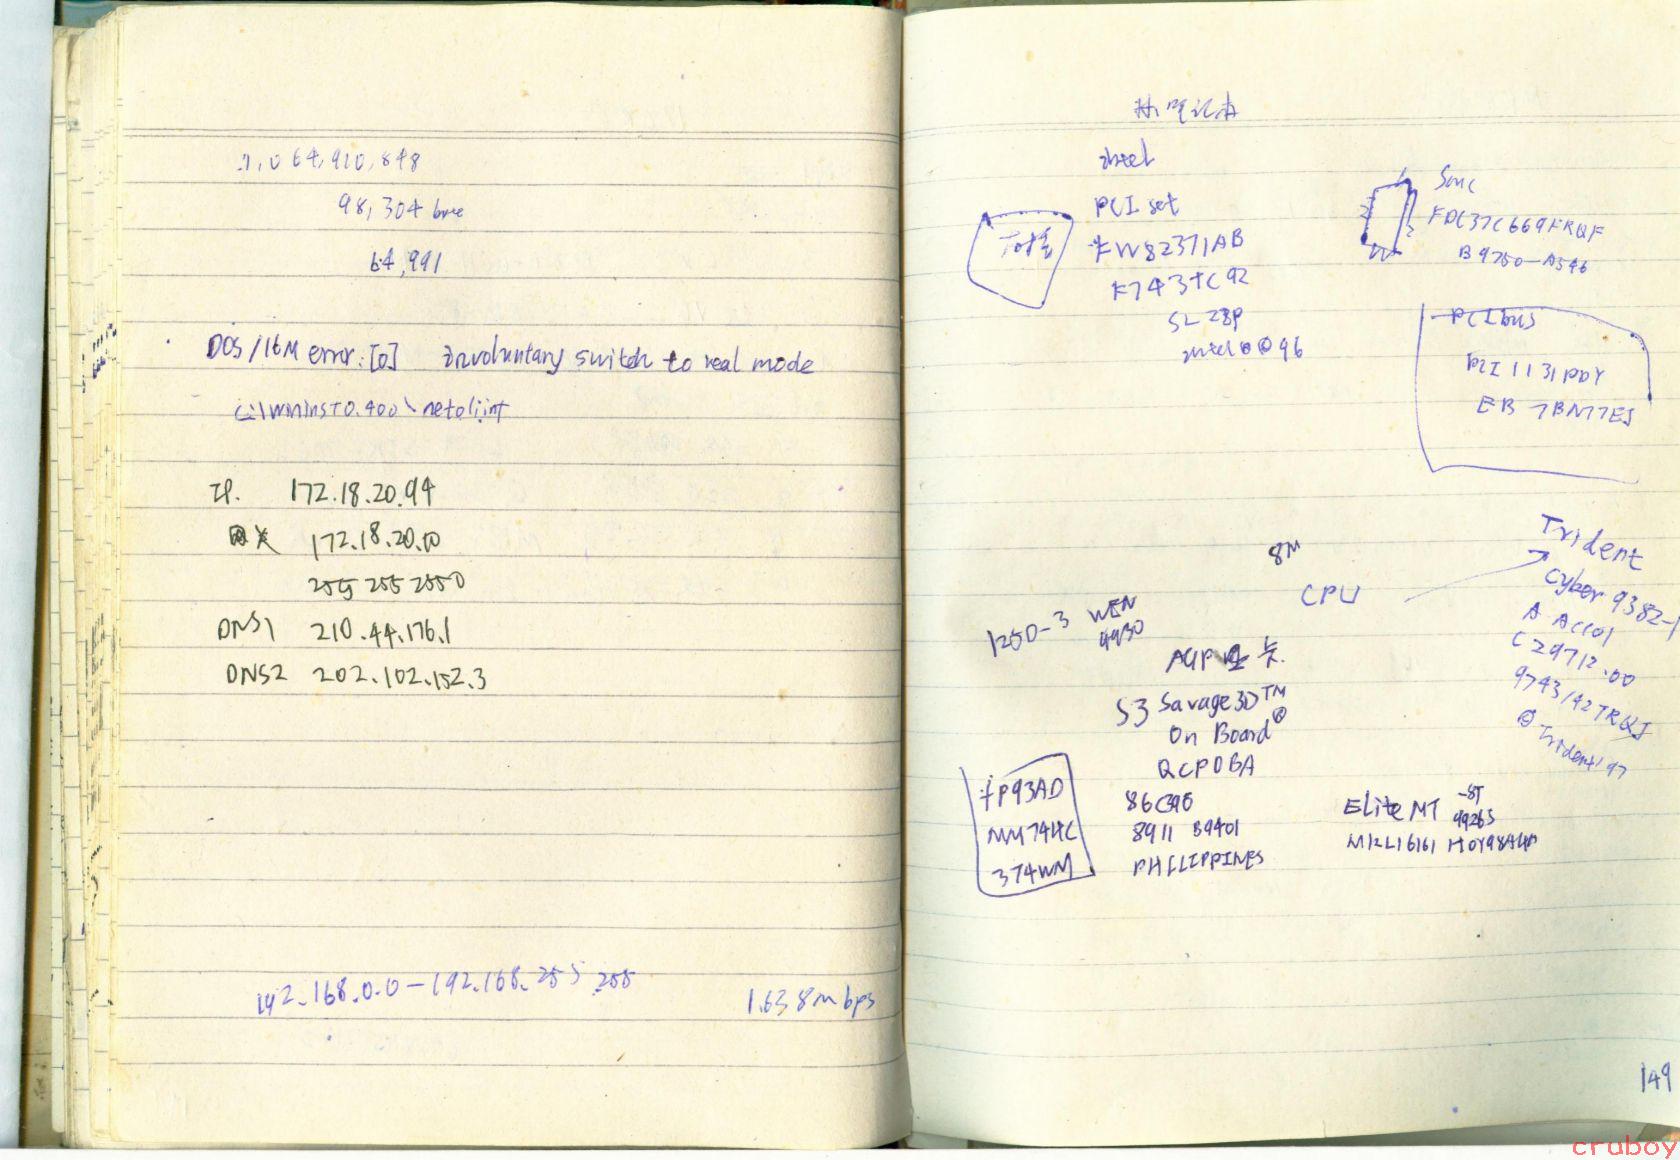 1,064,910,848
98,304
64,991
DOS/16M error: [0] Involuntary switch to real mode
IP. 172.18.20.94
网关 172.18.20.10
255 255 255 0
DNS1 210.44.176.1
DNS2 202.102.152.3
192.168.0.0-192.168.255 255
1.638mbps
笔记本
intel
PCI set
FW82371AB
F743TC92
SL28P
intel 96
SMC
FDC37C669FRQF
B9750-A546
PCI bus
PCI1131PDV
EB 7BN77EJ
8M
CPU
Trident
Cyber 9382-1
C29712.00
9743/42TRQJ
©Trident'97
1250-3 WEN
4930
AGP显卡
S3 Savage3D™
On Board®
QCPOBA
86C390
8911 B9401
PHILIPPINES
FP93AD
MM74HC
374WM
EliteMT -8T
9926S
M12L16161
149
cruboy